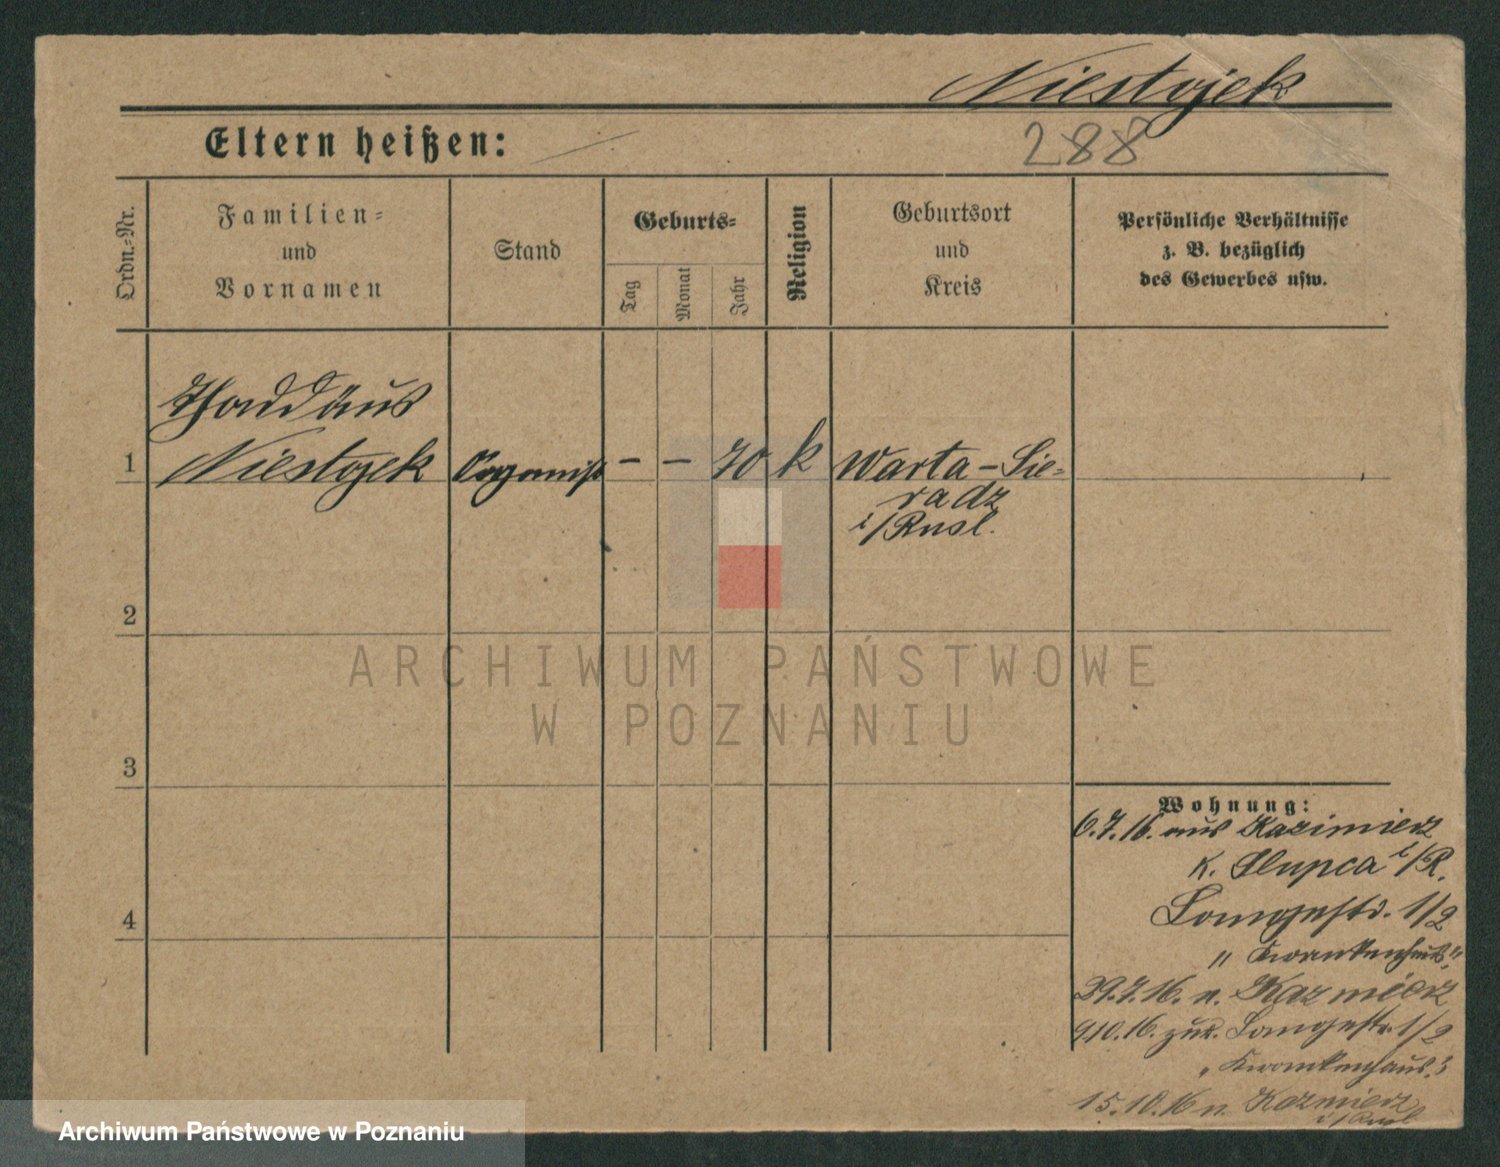 Niestojek
Eltern heißen:
288
Ordn.-Nr.
Familien-
und
Vornamen
Stand
Geburts-
Tag
Monat
Jahr
Religion
Geburtsort
und
Kreis
Persönliche Verhältnisse
z. B. bezüglich
des Gewerbes usw.
Thaddäus
1 Niestojek Organist - - 70 k Warta-Sie-
radz
i/Rusl.
2
3
4
Wohnung:
6.7.16. aus Kazimierz
K. Slupca i/R.
Langestr. 1/2
"Krankenhaus"
29.7.16. n. Kazmierz
9.10.16. zur. Langestr. 1/2
"Krankenhaus"
15.10.16 n. Kazmierz
i/Rusl
ARCHIWUM PAŃSTWOWE
W POZNANIU
Archiwum Państwowe w Poznaniu